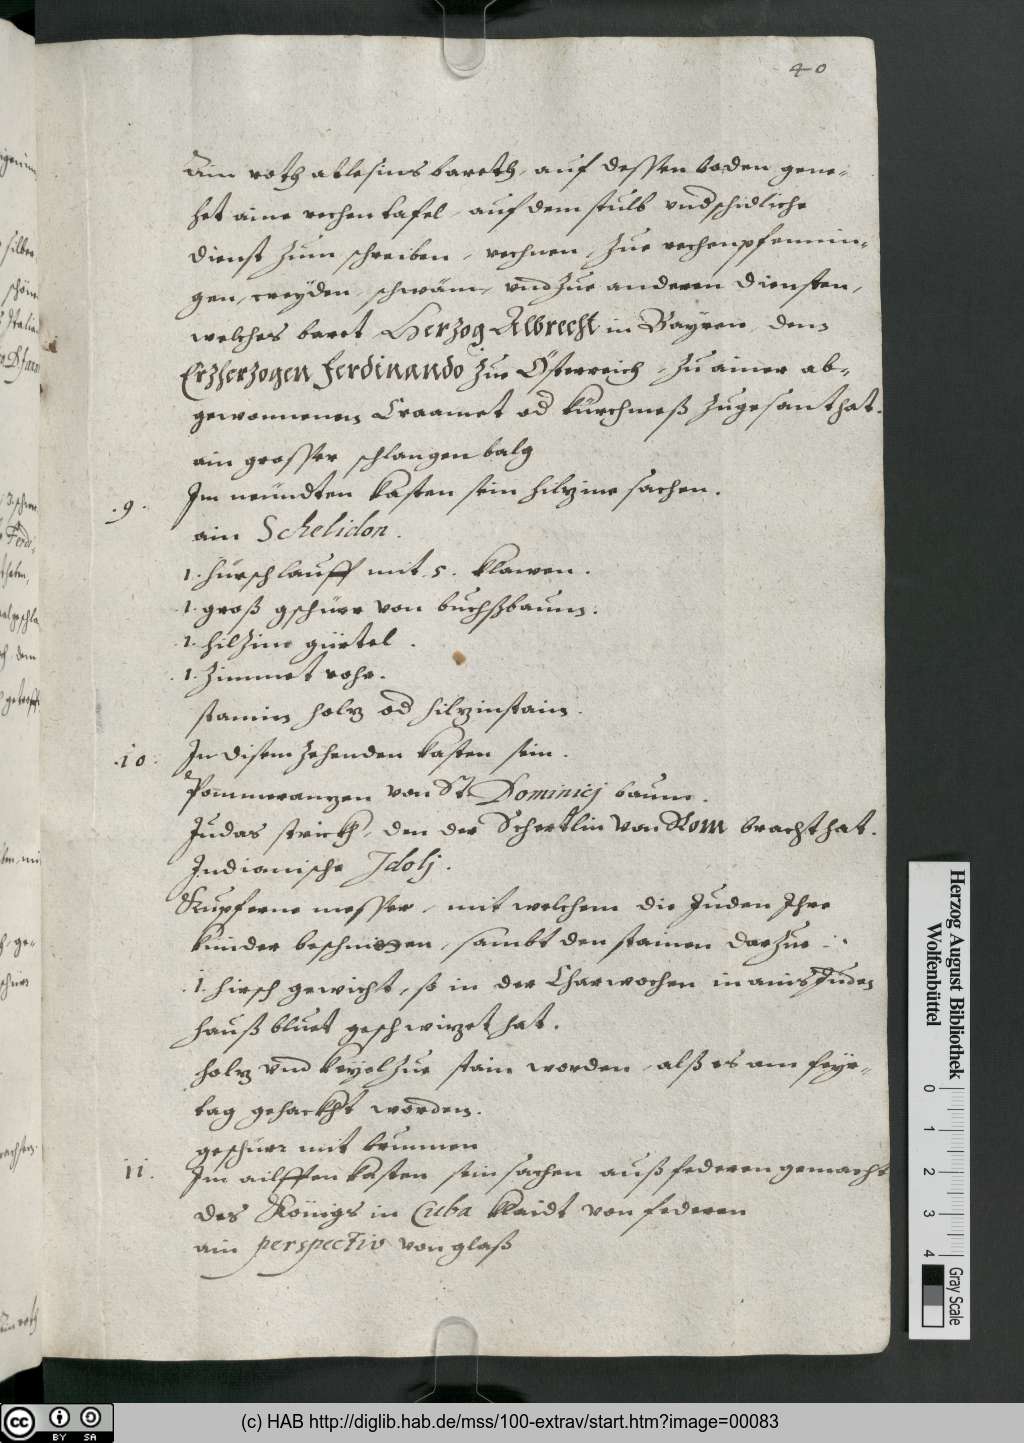 40
Ain roth atlesins bareth, auf dessen boden gene-
het aine rechen tafel, auf dem stulb vndschidliche
dienst zum schreiben, rechnen, zue rechenpfennin-
gen, creyden, schwäm, vnd zue anderen diensten,
welches baret Herzog Albrecht in Bayren, dem
Erzherzogen ferdinando zue Österreich, zu ainer ab-
gewonnenen Craamet od kürchmeß zugesant hat.
ain grosser schlangen balg
.9. Im neündten kasten sein hilzine sachen.
ain Schelidon.
1. hürschlauff mit .5. klawen.
1. groß gschürr von buchßbaum.
1. hilzine gürtel.
1. zimmet rohr.
stainin holz od hilzinstain.
.10. In disem zehenden kasten sein.
Pommeranzen von St. Dominicj baum.
Judas strickh, den der Schertlin von Rom bracht hat.
Indianische Idolj.
Kupferne messer, mit welchem die Juden Ihre
kinder beschnitten, sambt den stainen darzue
1. hirsch gewicht, so in der Charwochen in ainis Juden
hauß bluet geschwizet hat.
holz vnd keyel zue stain worden, alß es am feyr-
tag gehackht worden.
geschürr mit brunnen
11. Im ailfften kasten sein sachen auß federen gemacht
des Königs in Cuba klaidt von federen
ain perspectiv von glaß
Herzog August Bibliothek
Wolfenbüttel
0 1 2 3 4
Gray Scale
cc BY SA
(c) HAB http://diglib.hab.de/mss/100-extrav/start.htm?image=00083